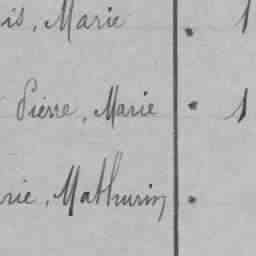 is, Marie . 1
Pierre, Marie . 1
rie, Mathurin .